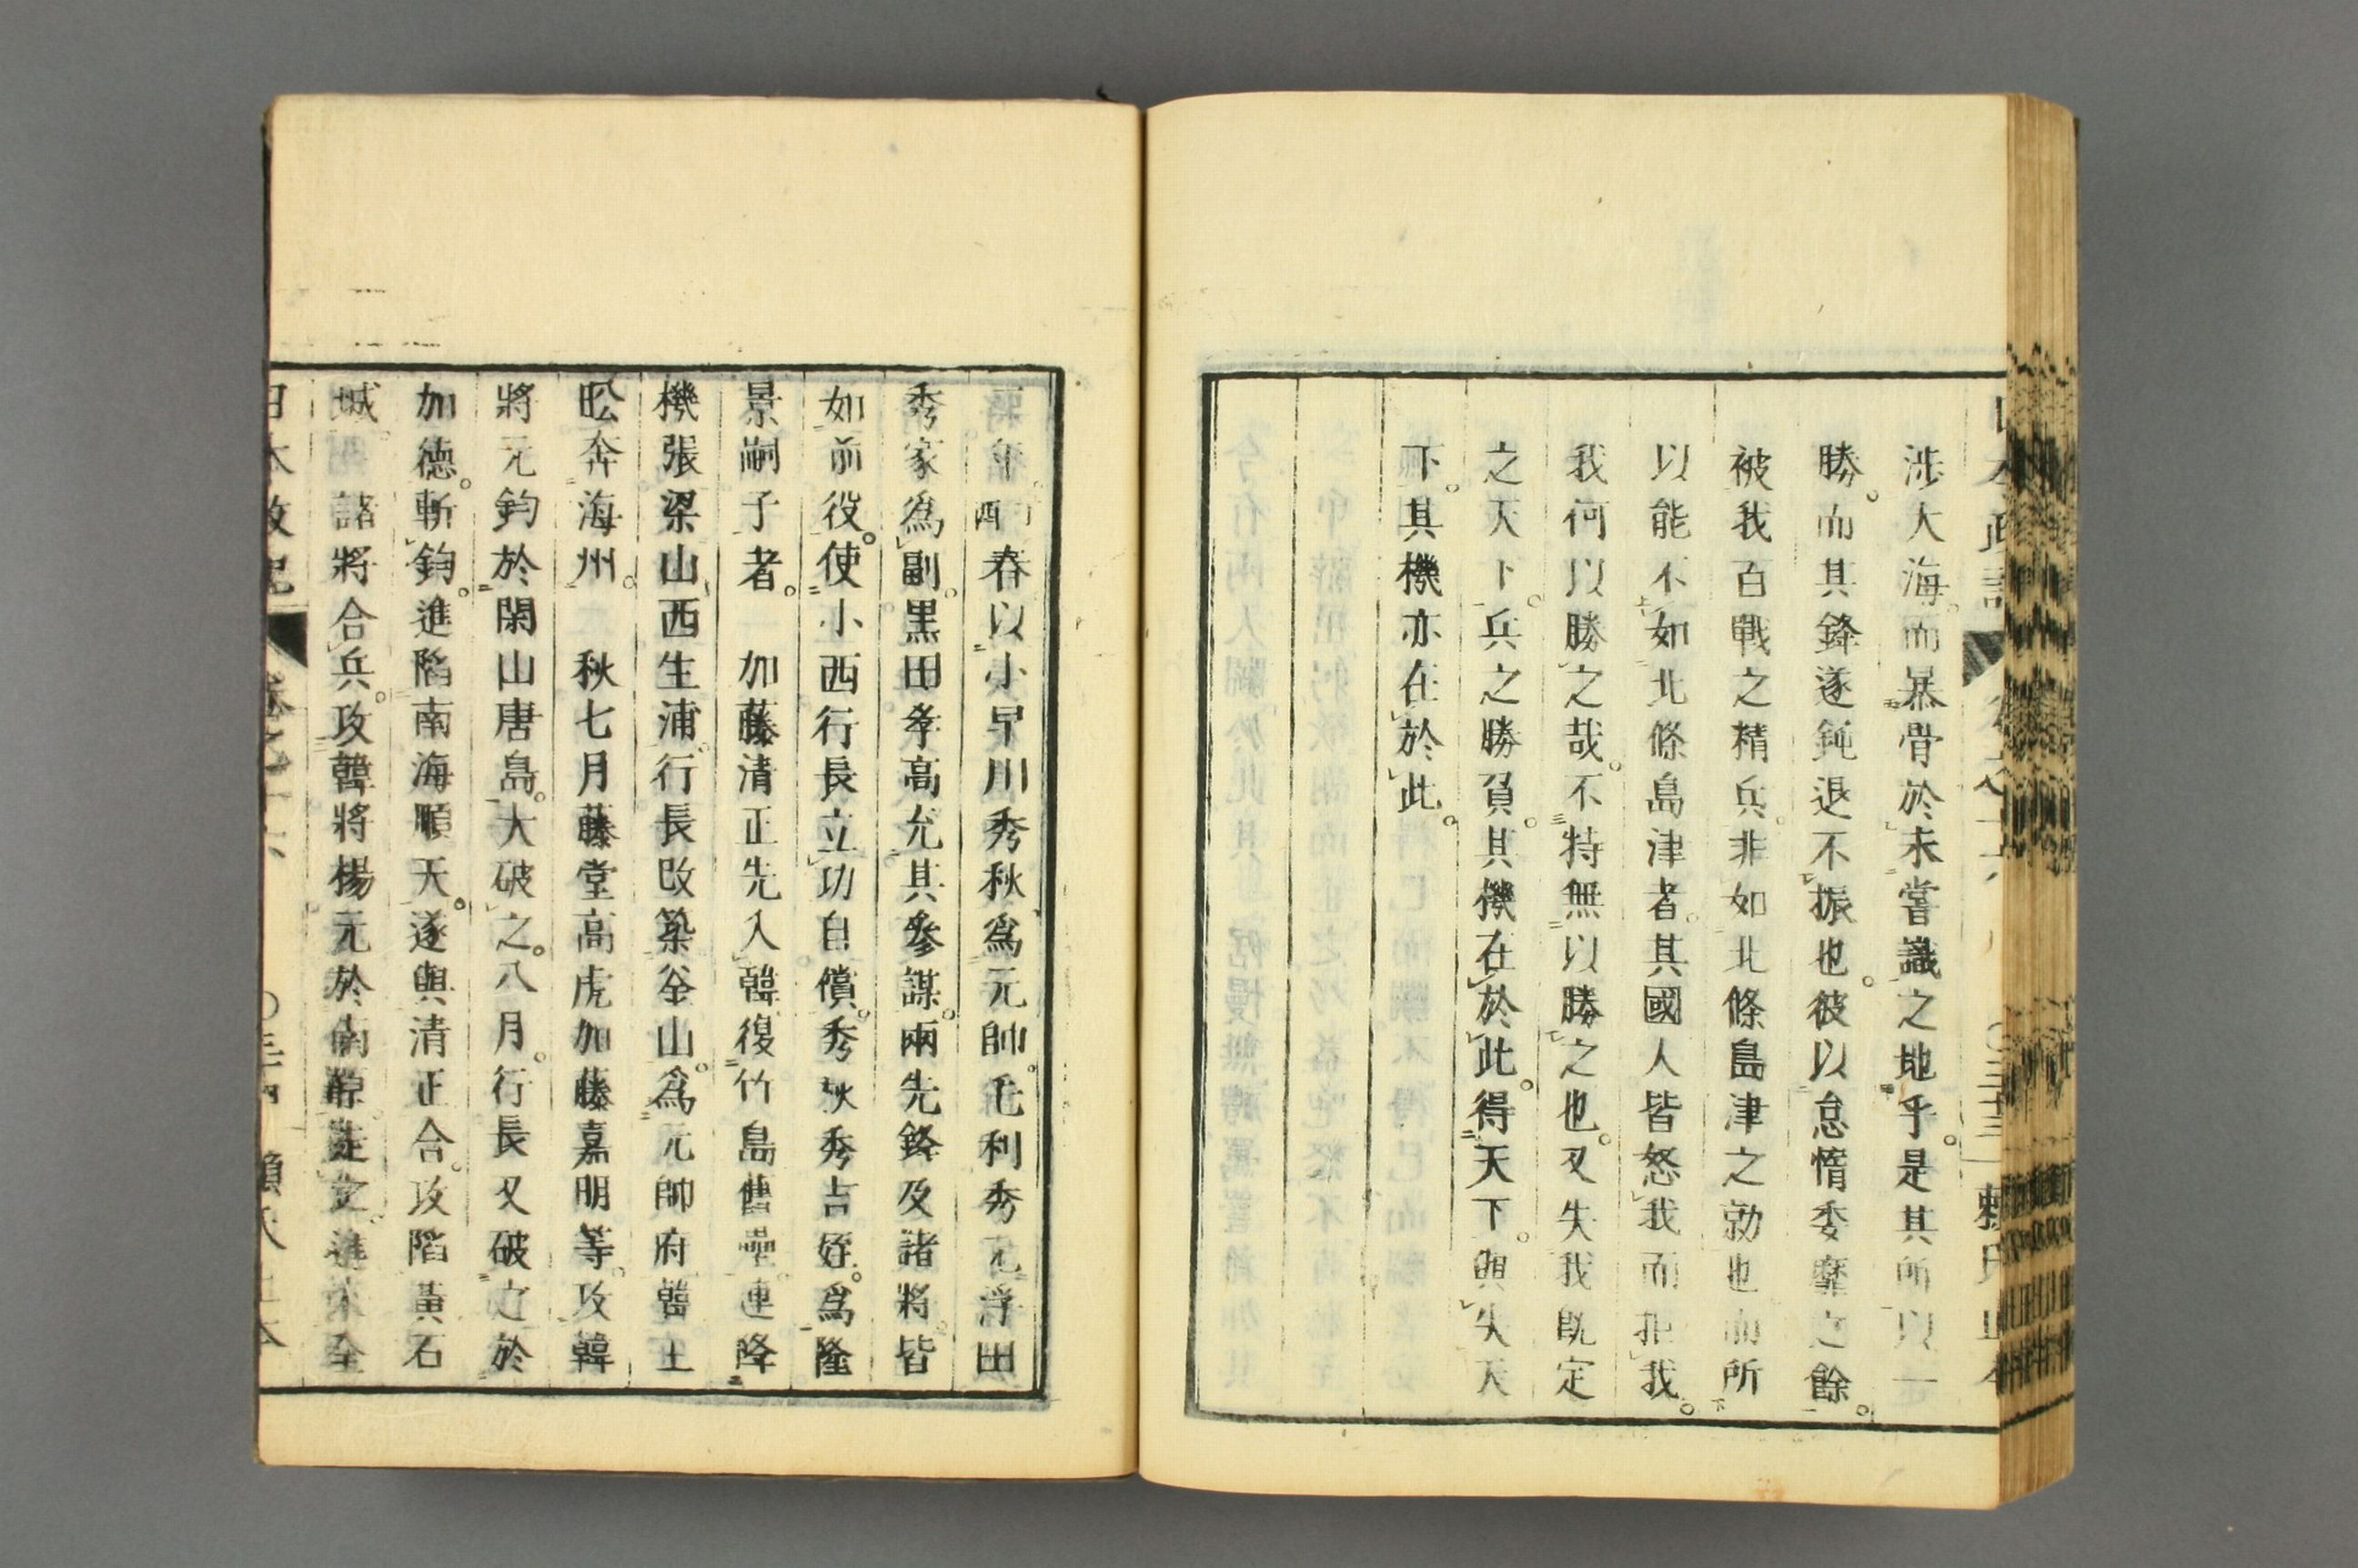 涉大海而暴骨於未嘗識之地乎。是其所以一
勝。而其鋒遂鈍退不振也。彼以怠惰委靡之餘。
被我百戰之精兵。非如北條島津之勍也而所
以能不如北條島津者。其國人皆怒我而拒我。
我何以勝之哉。不特無以勝之也。又失我既定
之天下。兵之勝負。其機在於此。得天下。與失天
下。其機亦在於此。
年酉春以小早川秀秋爲元帥。毛利秀元浮田
秀家爲副。黒田孝高允其參謀。兩先鋒及諸將皆
如前役。使小西行長立功自償。秀秋秀吉姪。爲隆
景嗣子者。加藤清正先入韓復竹島舊壘連降
機張梁山西生浦。行長改築釜山。爲元帥府韓土
舩奔海州。秋七月藤堂高虎加藤嘉明等。攻韓
將元鈞於閑山唐島。大破之。八月。行長又破之於
加德。斬鈞。進陷南海順天。遂與清正合。攻陷黃石
城。諸將合兵。攻韓將楊元於南原走之。進次全
日本政記 卷之十六 〇三十四 賴氏正本